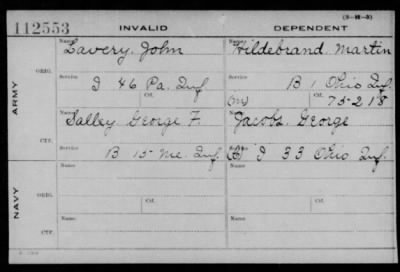 (3-H-3)
112553 INVALID DEPENDENT
Name: Lavery, John Name: Hildebrand, Martin
ARMY
ORIG.
Service Service
I 46 Pa. Inf. B 1 Ohio Inf.
Ctf. (M) Ctf. 75-218
Name: Salley George F. Name: Jacobs, George
CTF.
Service Service
B 15 Me. Inf. I 33 Ohio Inf.
NAVY
Name Name
ORIG.
Service Ctf. Service Ctf.
Name Name
CTF.
Service Service